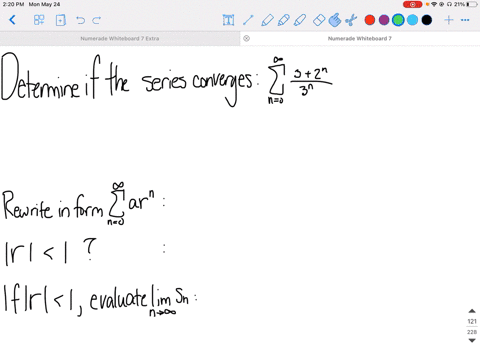 2:20 PM Mon May 24
21%
Numerade Whiteboard 7 Extra
Numerade Whiteboard 7
Determine if the series converges: ∑_{n=0}^{∞} (3+2^n)/3^n
Rewrite in form ∑_{n=0}^{∞} ar^n :
|r| < 1 ? :
If |r| < 1, evaluate lim_{n→∞} Sn :
121
228